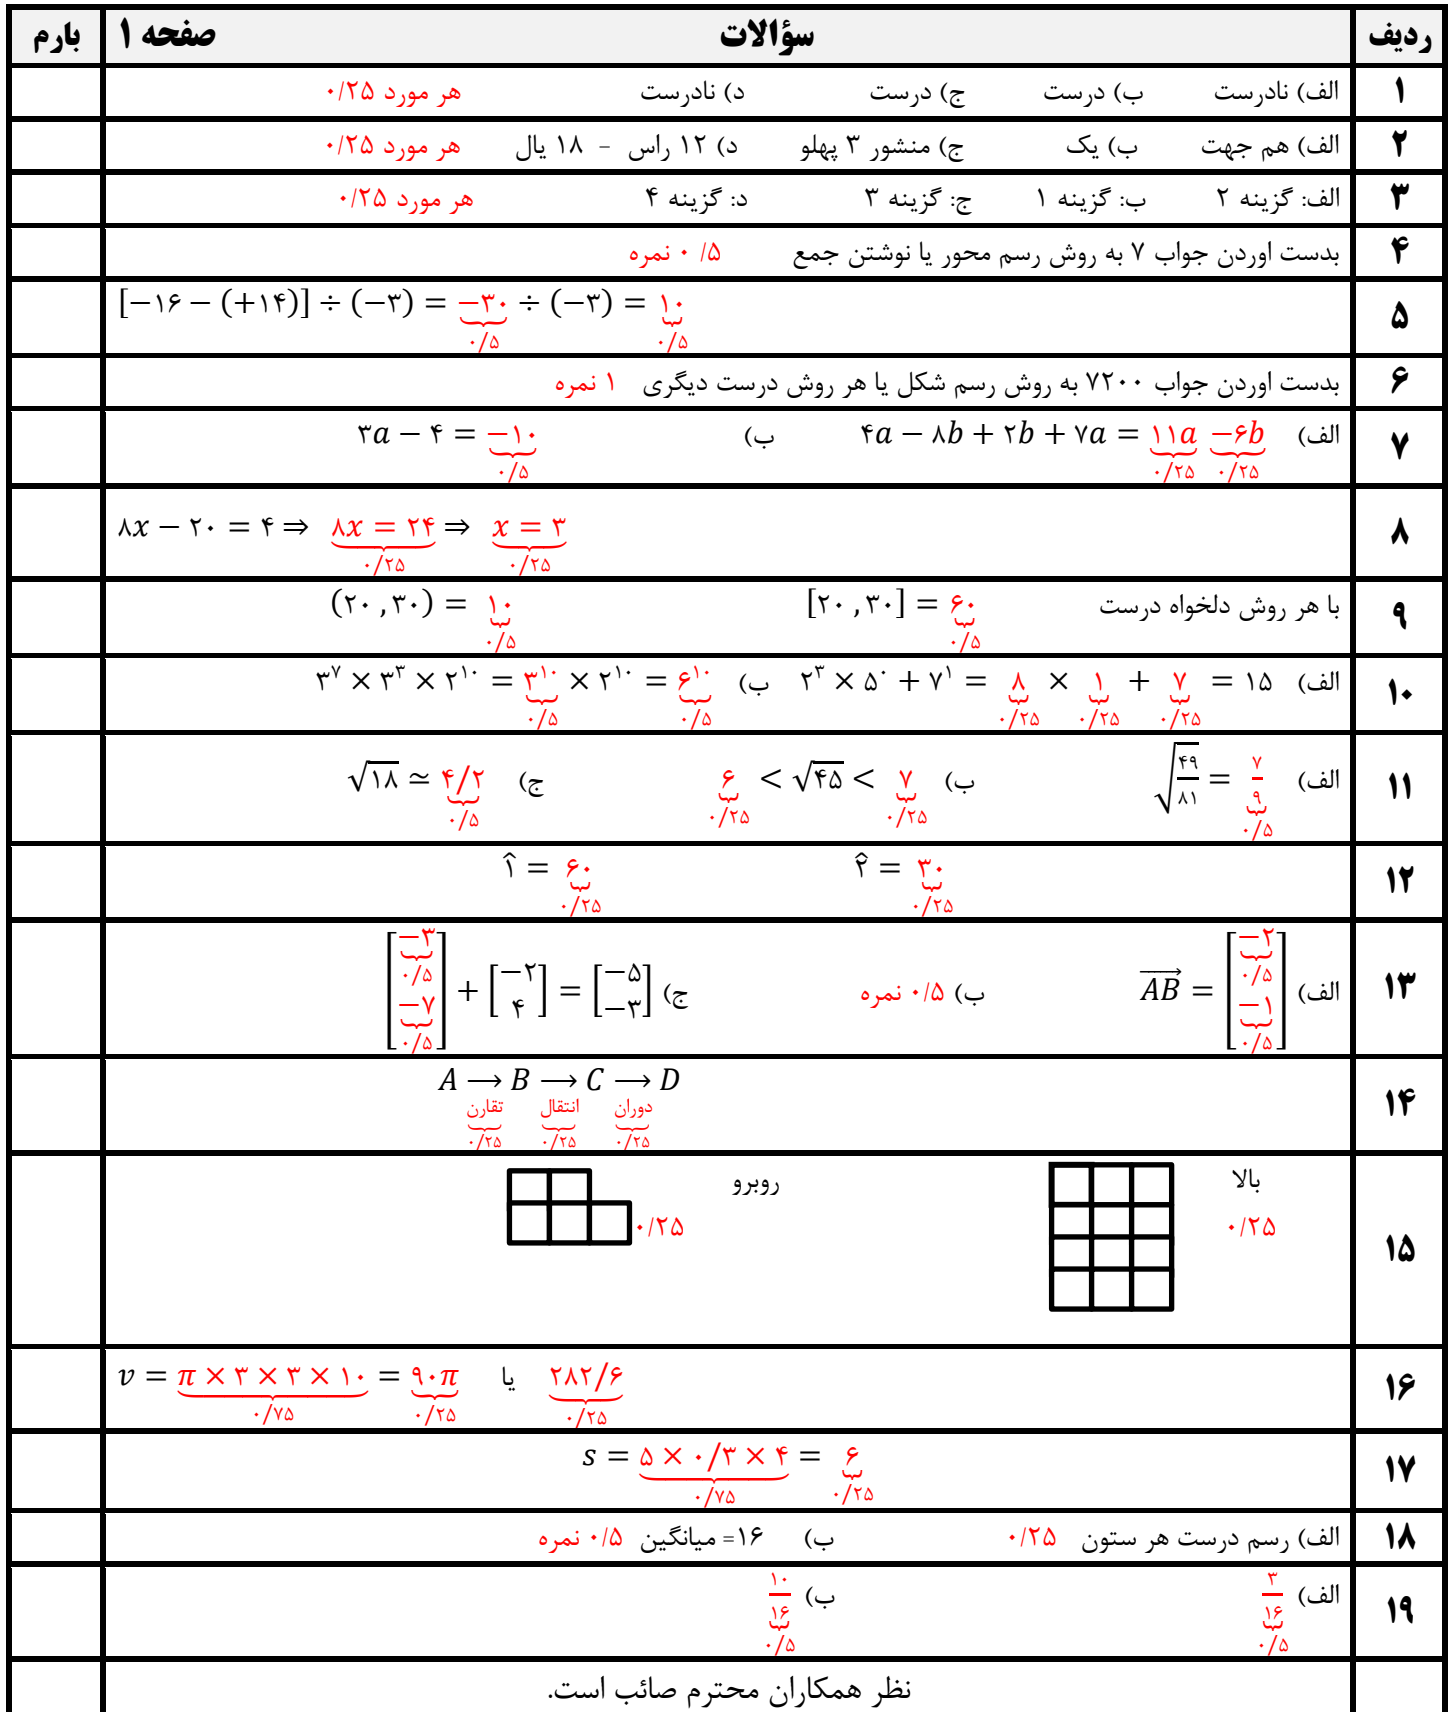 ردیف سؤالات صفحه ۱ بارم
۱ الف) نادرست ب) درست ج) درست د) نادرست هر مورد ۰/۲۵
۲ الف) هم جهت ب) یک ج) منشور ۳ پهلو د) ۱۲ راس - ۱۸ یال هر مورد ۰/۲۵
۳ الف: گزینه ۲ ب: گزینه ۱ ج: گزینه ۳ د: گزینه ۴ هر مورد ۰/۲۵
۴ بدست اوردن جواب ۷ به روش رسم محور یا نوشتن جمع ۰/۵ نمره
۵ [−۱۶ − (+۱۴)] ÷ (−۳) = −۳۰ ÷ (−۳) = ۱۰
۰/۵ ۰/۵
۶ بدست اوردن جواب ۷۲۰۰ به روش رسم شکل یا هر روش درست دیگری ۱ نمره
۷ الف) ۴a − ۸b + ۲b + ۷a = ۱۱a −۶b ب) ۳a − ۴ = −۱۰
۰/۲۵ ۰/۲۵ ۰/۵
۸ ۸x − ۲۰ = ۴ ⇒ ۸x = ۲۴ ⇒ x = ۳
۰/۲۵ ۰/۲۵
۹ با هر روش دلخواه درست [۲۰ , ۳۰] = ۶۰ (۲۰ , ۳۰) = ۱۰
۰/۵ ۰/۵
۱۰ الف) ۲³ × ۵⁰ + ۷¹ = ۸ × ۱ + ۷ = ۱۵ ب) ۳⁷ × ۳³ × ۲¹⁰ = ۳¹⁰ × ۲¹⁰ = ۶¹⁰
۰/۲۵ ۰/۲۵ ۰/۲۵ ۰/۵ ۰/۵
۱۱ الف) √(۴۹/۸۱) = ۷/۹ ب) ۶ < √۴۵ < ۷ ج) √۱۸ ≃ ۴/۲
۰/۵ ۰/۲۵ ۰/۲۵ ۰/۵
۱۲ ۲̂ = ۳۰ ۱̂ = ۶۰
۰/۲۵ ۰/۲۵
۱۳ الف) AB⃗ = [−۲ ۰/۵ −۱ ۰/۵] ب) ۰/۵ نمره ج) [−۳ ۰/۵ −۷ ۰/۵] + [−۲ ۴] = [−۵ −۳]
۱۴ A ⟶ B ⟶ C ⟶ D
تقارن انتقال دوران
۰/۲۵ ۰/۲۵ ۰/۲۵
۱۵ بالا روبرو
۰/۲۵ ۰/۲۵
۱۶ v = π × ۳ × ۳ × ۱۰ = ۹۰π یا ۲۸۲/۶
۰/۷۵ ۰/۲۵ ۰/۲۵
۱۷ s = ۵ × ۰/۳ × ۴ = ۶
۰/۷۵ ۰/۲۵
۱۸ الف) رسم درست هر ستون ۰/۲۵ ب) ۱۶= میانگین ۰/۵ نمره
۱۹ الف) ۳/۱۶ ب) ۱۰/۱۶
۰/۵ ۰/۵
نظر همکاران محترم صائب است.